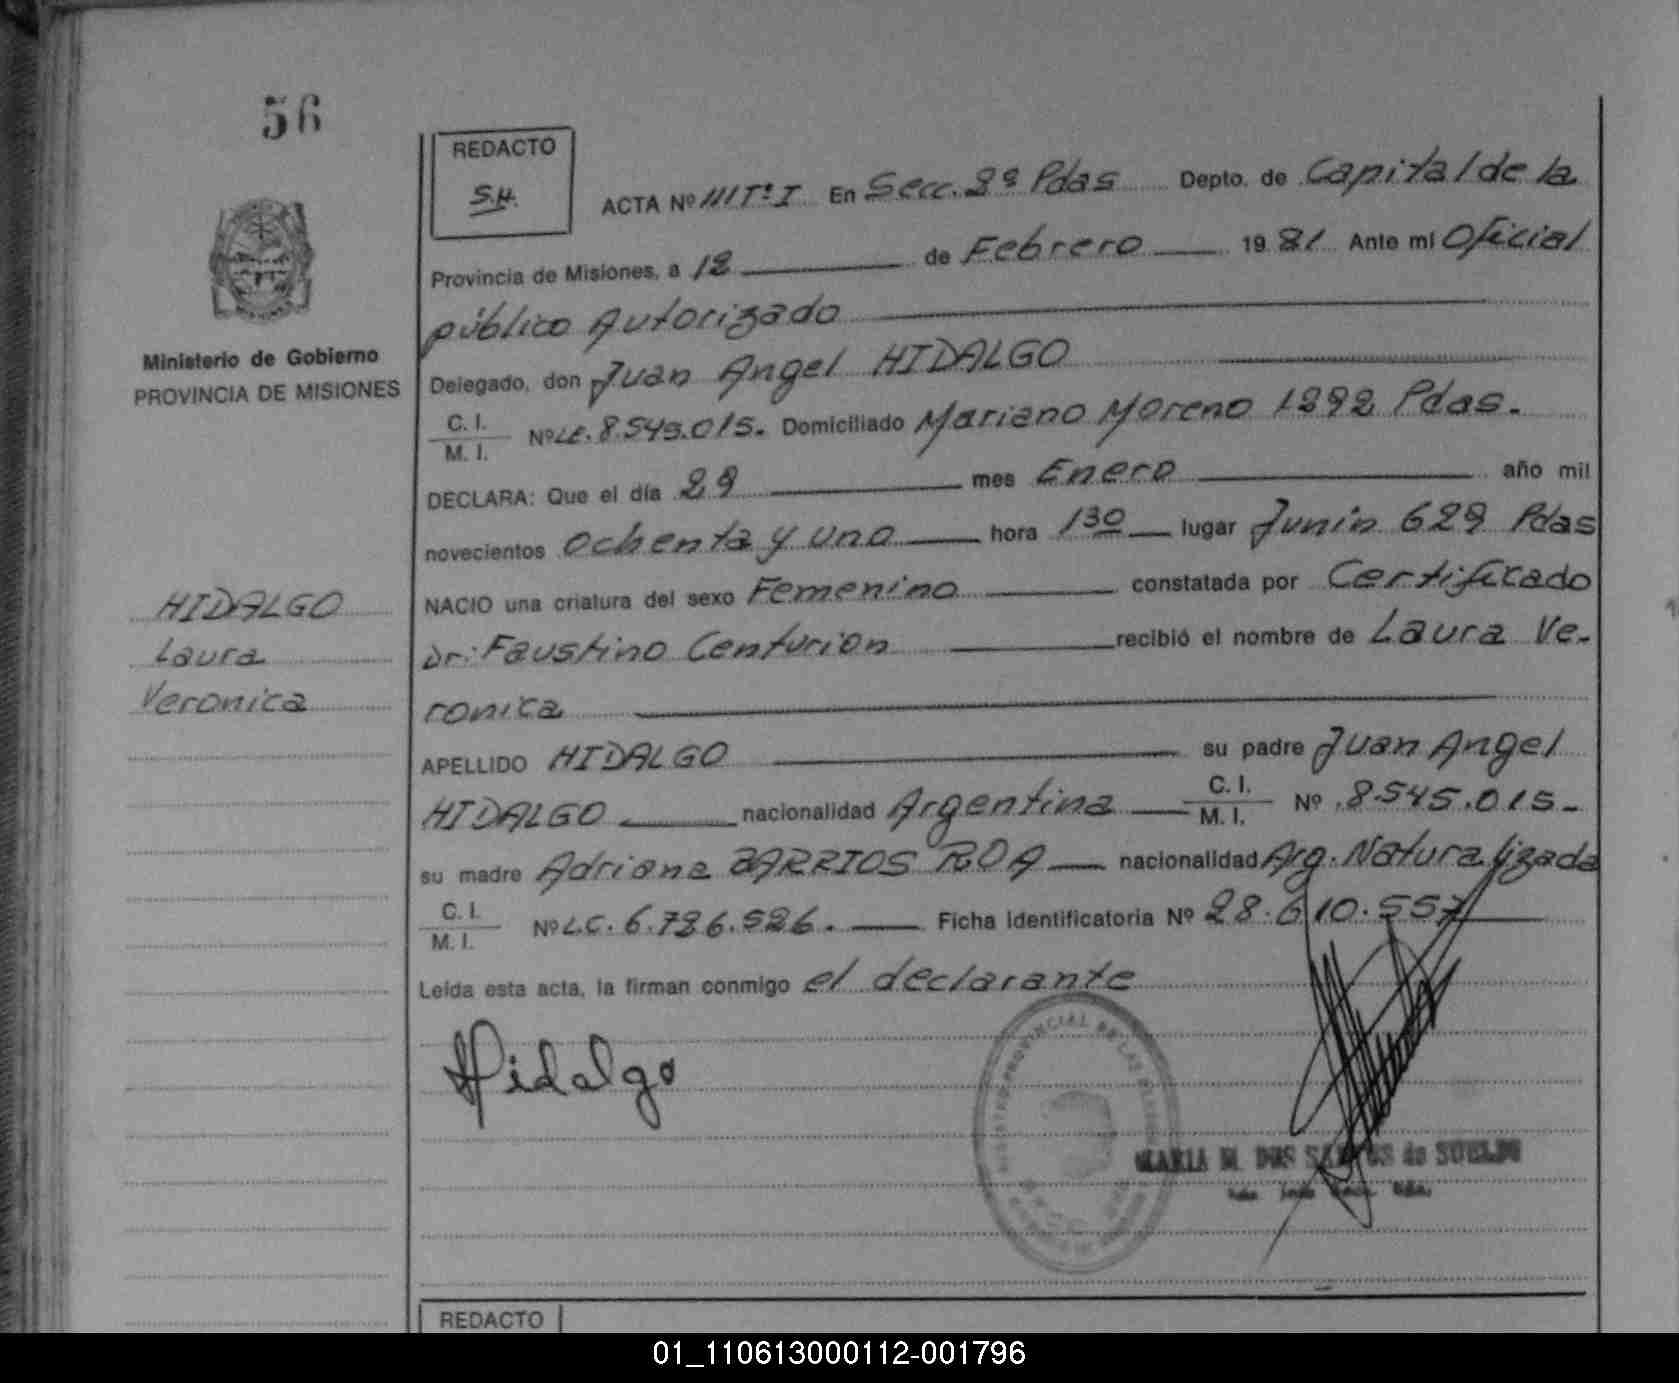 56
REDACTO
S.H.
ACTA Nº 111 Tº I En Secc. 2ª Pdas Depto. de Capital de la
Provincia de Misiones, a 12 de Febrero 1981 Ante mi Oficial
público Autorizado
Ministerio de Gobierno
PROVINCIA DE MISIONES
Delegado, don Juan Angel HIDALGO
C. I.
M. I.
Nº LE. 8.545.015. Domiciliado Mariano Moreno 1292 Pdas.
DECLARA: Que el día 29 mes Enero año mil
novecientos ochenta y uno hora 130 lugar Junin 629 Pdas
NACIO una criatura del sexo Femenino constatada por Certificado
Dr: Faustino Centurion recibió el nombre de Laura Ve-
ronica
HIDALGO
Laura
Veronica
APELLIDO HIDALGO su padre Juan Angel
HIDALGO nacionalidad Argentina C. I. M. I. Nº 8.545.015-
su madre Adriana BARRIOS ROA nacionalidad Arg. Naturalizada
C. I.
M. I.
Nº L.C. 6.726.526. Ficha Identificatoria Nº 28.610.557
Leída esta acta, la firman conmigo el declarante
Hidalgo
MARIA M. DOS SANTOS de SUELDO
REDACTO
01_110613000112-001796